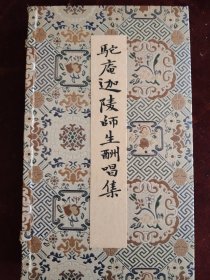 駝庵迦陵師生酬唱集